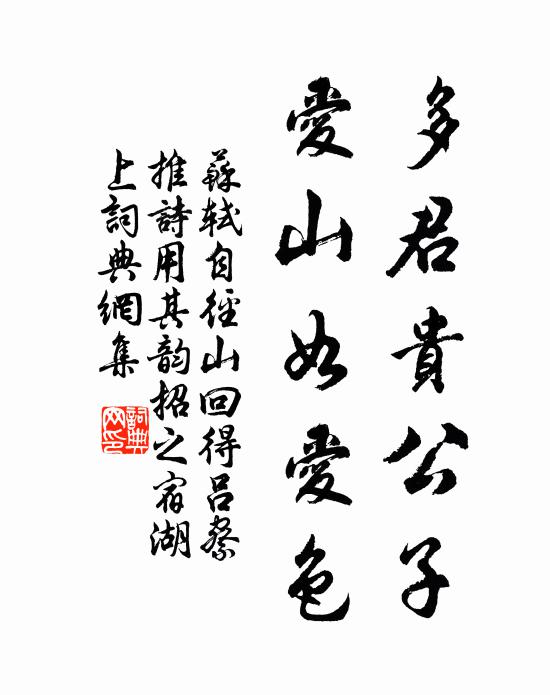 多君貴公子
愛山如愛色
蘇軾自徑山回得呂察
推詩用其韵招之宿湖
上詞典網集
詞典网印